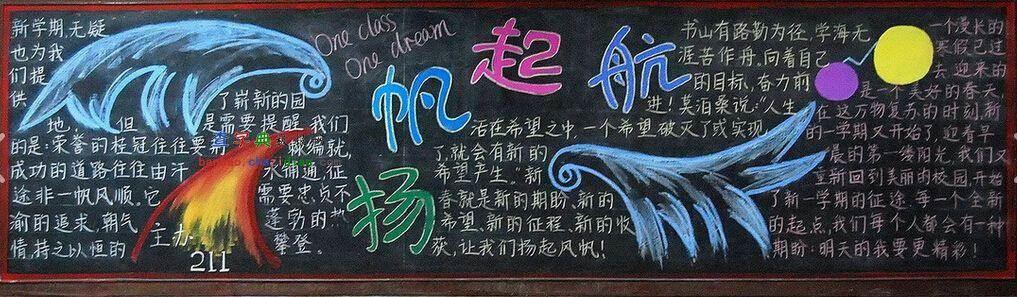 新学期,无疑
也为我
们提
供 了崭新的园
地。但 是需要提醒我们
的是:荣誉的桂冠往往要 棘编就,
成功的道路往往由汗 水铺通,征
途非一帆风顺。它 需要忠贞不
渝的追求,朝气 蓬勃的热
情,持之以恒的 攀登。
主办
211
One class
One dream
扬帆
起航
书山有路勤为径,学海无
涯苦作舟,向着自己
的目标,奋力前
进!莫泊桑说:“人生
活在希望之中,一个希望破灭了或实现
了,就会有新的
希望产生。”新
春就是新的期盼、新的
希望、新的征程、新的收
获,让我们扬起风帆!
一个漫长的
寒假已过
去,迎来的
是一个美好的春天,
在这万物复苏的时刻,新
的一学期又开始了,迎着早
晨的第一缕阳光,我们又
重新回到美丽的校园,开始
了新一学期的征途。每一个全新
的起点,我们每个人都会有一种
期盼:明天的我要更精彩!